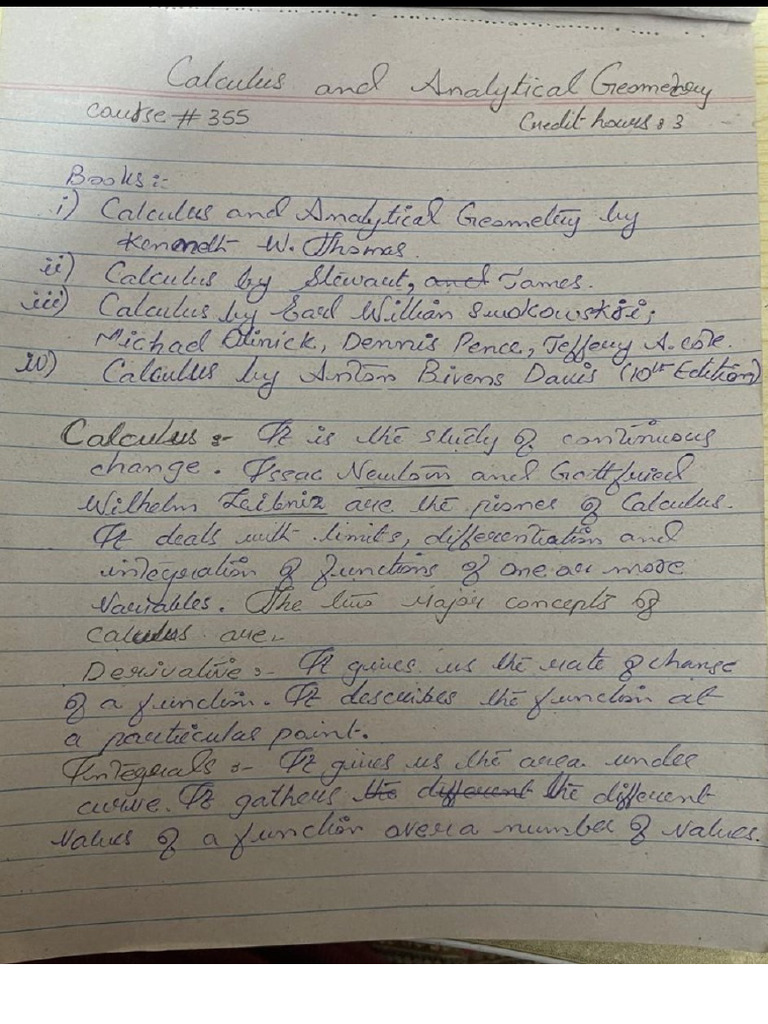 Calculus and Analytical Geometry
course # 355 Credit hours : 3
Books :-
i) Calculus and Analytical Geometry by
Kenneth W. Thomas.
ii) Calculus by Stewart, and James.
iii) Calculus by Earl Willian Swokowski,
Michael Olinick, Dennis Pence, Jeffery A. cole.
iv) Calculus by Anton Bivens Davis (10th Edition)
Calculus :- It is the study of continuous
change. Issac Newton and Gottfried
Wilhelm Leibniz are the of Calculus.
It deals with limits, differentiation and
integration of functions of one or more
Variables. The two major concepts of
calculus are.
Derivative :- It gives us the rate of change
of a function. It describes the function at
a particular point.
Integrals :- It gives us the area under
curve. It gathers the different the different
values of a function over a number of values.